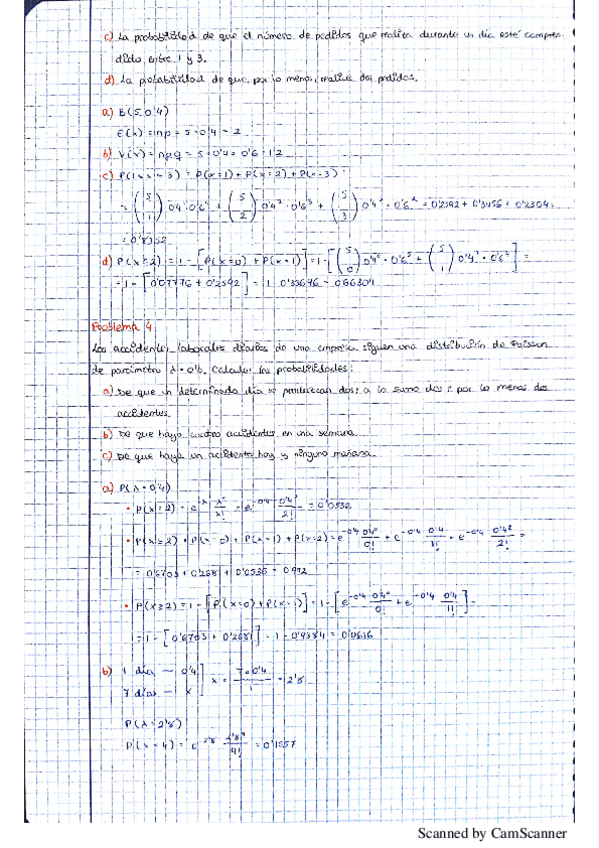 c) La probabilidad de que el número de pedidos que realiza durante un día esté compren-
dido entre 1 y 3.
d) La probabilidad de que, por lo menos, realice dos pedidos.
a) B(5, 0'4)
E(x) = np = 5 · 0'4 = 2
b) V(x) = npq = 5 · 0'4 · 0'6 = 1'2
c) P(1 ≤ x ≤ 3) = P(x=1) + P(x=2) + P(x=3) =
= (5 1) 0'4 · 0'6⁴ + (5 2) 0'4² · 0'6³ + (5 3) 0'4³ · 0'6² = 0'2592 + 0'3456 + 0'2304 =
= 0'8352
d) P(x≥2) = 1 - [P(x=0) + P(x=1)] = 1 - [(5 0) 0'4⁰ · 0'6⁵ + (5 1) 0'4¹ · 0'6⁴] =
= 1 - [0'07776 + 0'2592] = 1 - 0'33696 = 0'66304
Problema 4
Los accidentes laborales diarios de una empresa siguen una distribución de Poisson
de parámetro λ = 0'4. Calcular las probabilidades:
a) De que un determinado día se produzcan dos; a lo sumo dos; por lo menos dos
accidentes.
b) De que haya cuatro accidentes en una semana.
c) De que haya un accidente hoy y ninguno mañana.
a) P(λ = 0'4)
• P(x=2) = e^-λ λ^x/x! = e^-0'4 0'4²/2! = 0'0536
• P(x≤2) = P(x=0) + P(x=1) + P(x=2) = e^-0'4 0'4⁰/0! + e^-0'4 0'4/1! + e^-0'4 0'4²/2! =
= 0'6703 + 0'2681 + 0'0536 = 0'992
• P(x≥2) = 1 - [P(x=0) + P(x=1)] = 1 - [e^-0'4 0'4⁰/0! + e^-0'4 0'4/1!] =
= 1 - [0'6703 + 0'2681] = 1 - 0'9384 = 0'0616
b) 1 día — 0'4
7 días — x ] x = 7·0'4/1 = 2'8
P(λ = 2'8)
P(x = 4) = e^-2'8 2'8⁴/4! = 0'1557
Scanned by CamScanner